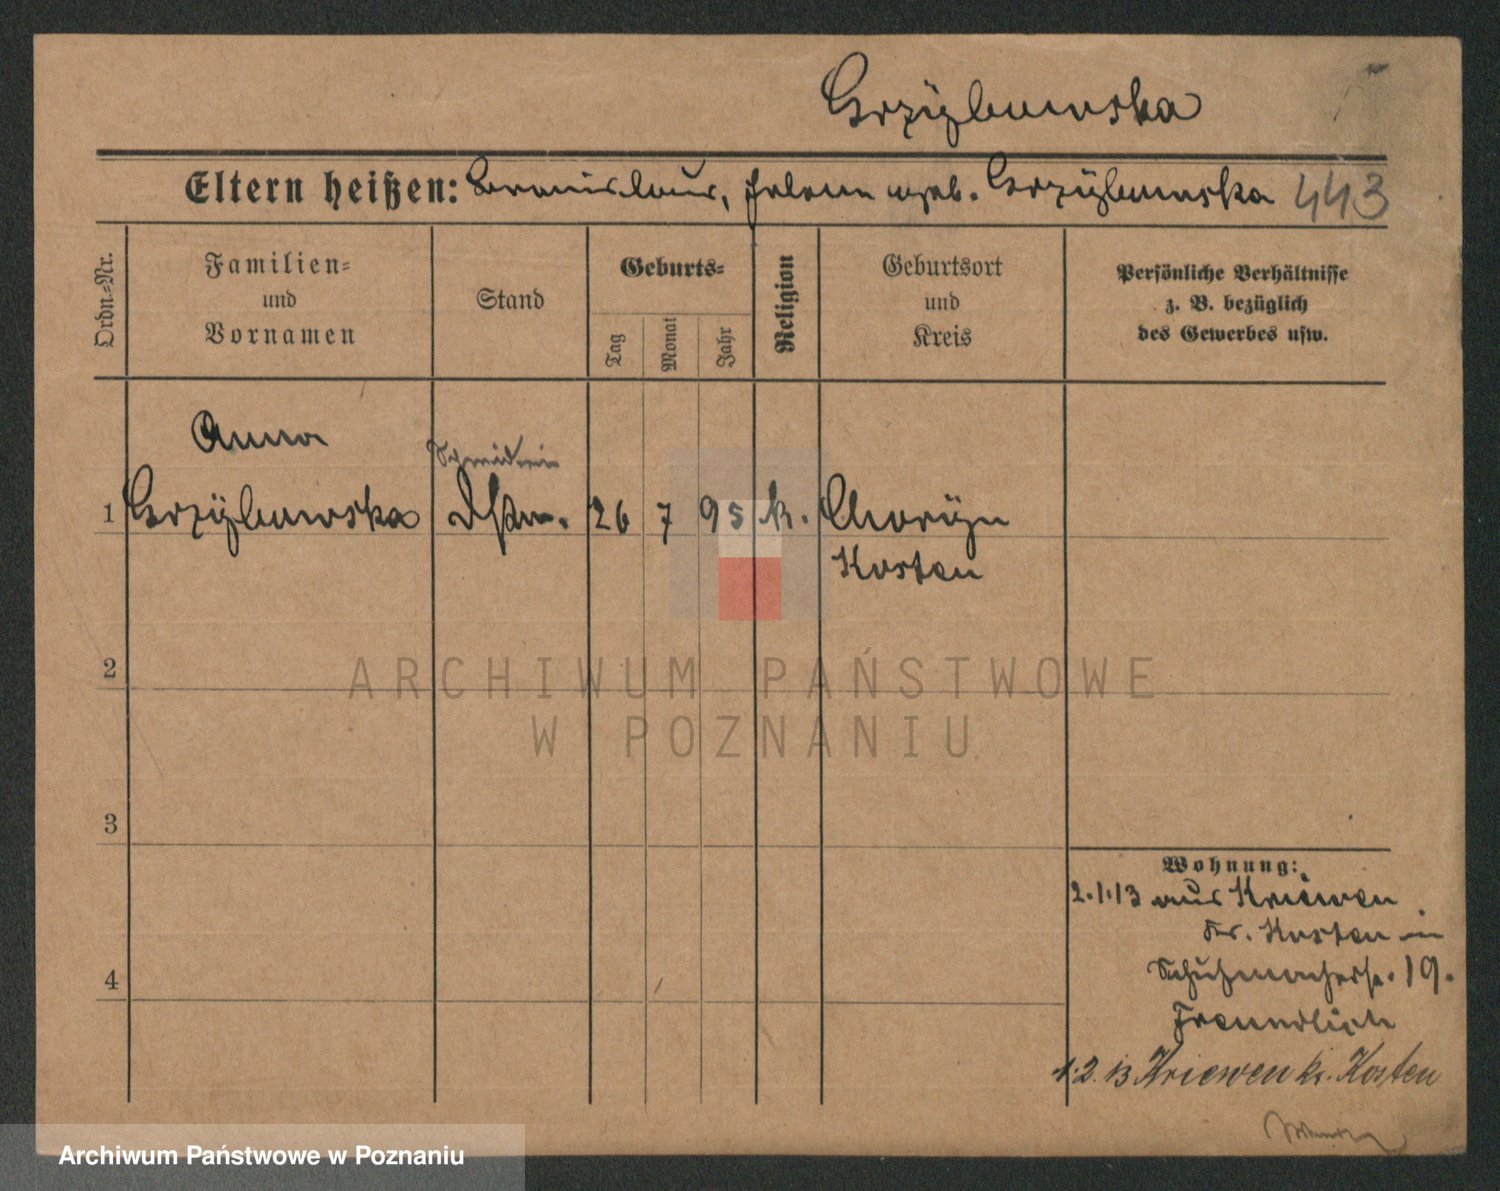 Grzÿbowska
Eltern heißen: Bronislaus, Helene geb. Grzÿbowska 443
Ordn.=Nr.
Familien=
und
Vornamen
Stand
Geburts=
Tag
Monat
Jahr
Religion
Geburtsort
und
Kreis
Persönliche Verhältnisse
z. B. bezüglich
des Gewerbes usw.
Anna
Schneiderin
1 Grzÿbowska 26 7 95 k. Chorÿn
Kosten
2
ARCHIWUM PAŃSTWOWE
W POZNANIU
3
Wohnung:
2.1.13 aus Kriewen
Kr. Kosten in
Schuhmacherstr. 19.
Freundlich
1.2.13 Kriewen Kr. Kosten
4
Archiwum Państwowe w Poznaniu